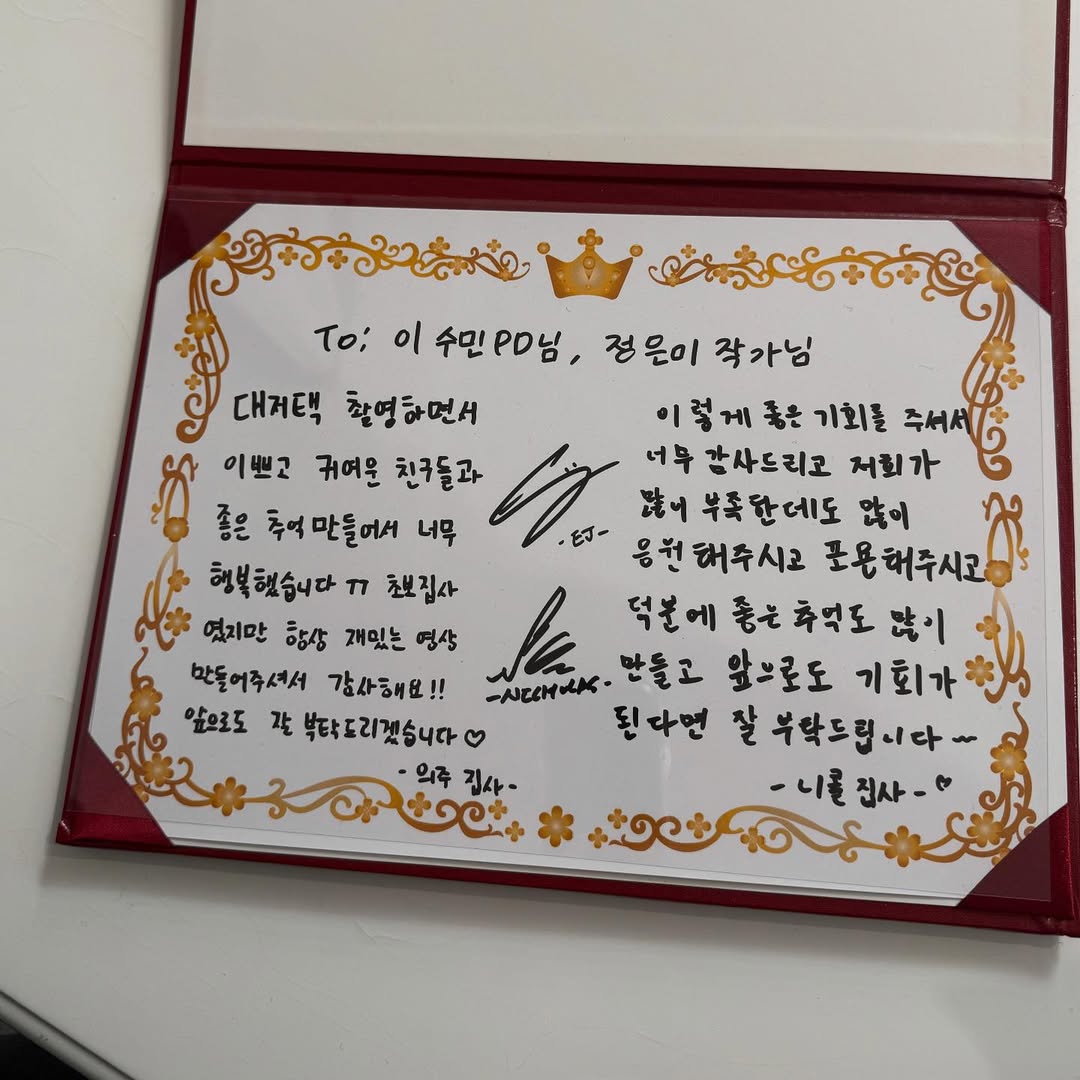 To; 이수민PD님, 정은미 작가님
대저택 촬영하면서
이쁘고 귀여운 친구들과
좋은 추억 만들어서 너무
행복했습니다 ㅠ 초보집사
였지만 항상 재밌는 영상
만들어주셔서 감사해요!!
앞으로도 잘 부탁드리겠습니다♡
- 의주 집사 -
-EJ-
이렇게 좋은 기회를 주셔서
너무 감사드리고 저희가
많이 부족한데도 많이
응원해주시고 포용해주시고
덕분에 좋은 추억도 많이
만들고 앞으로도 기회가
된다면 잘 부탁드립니다~
- 니콜 집사 -♡